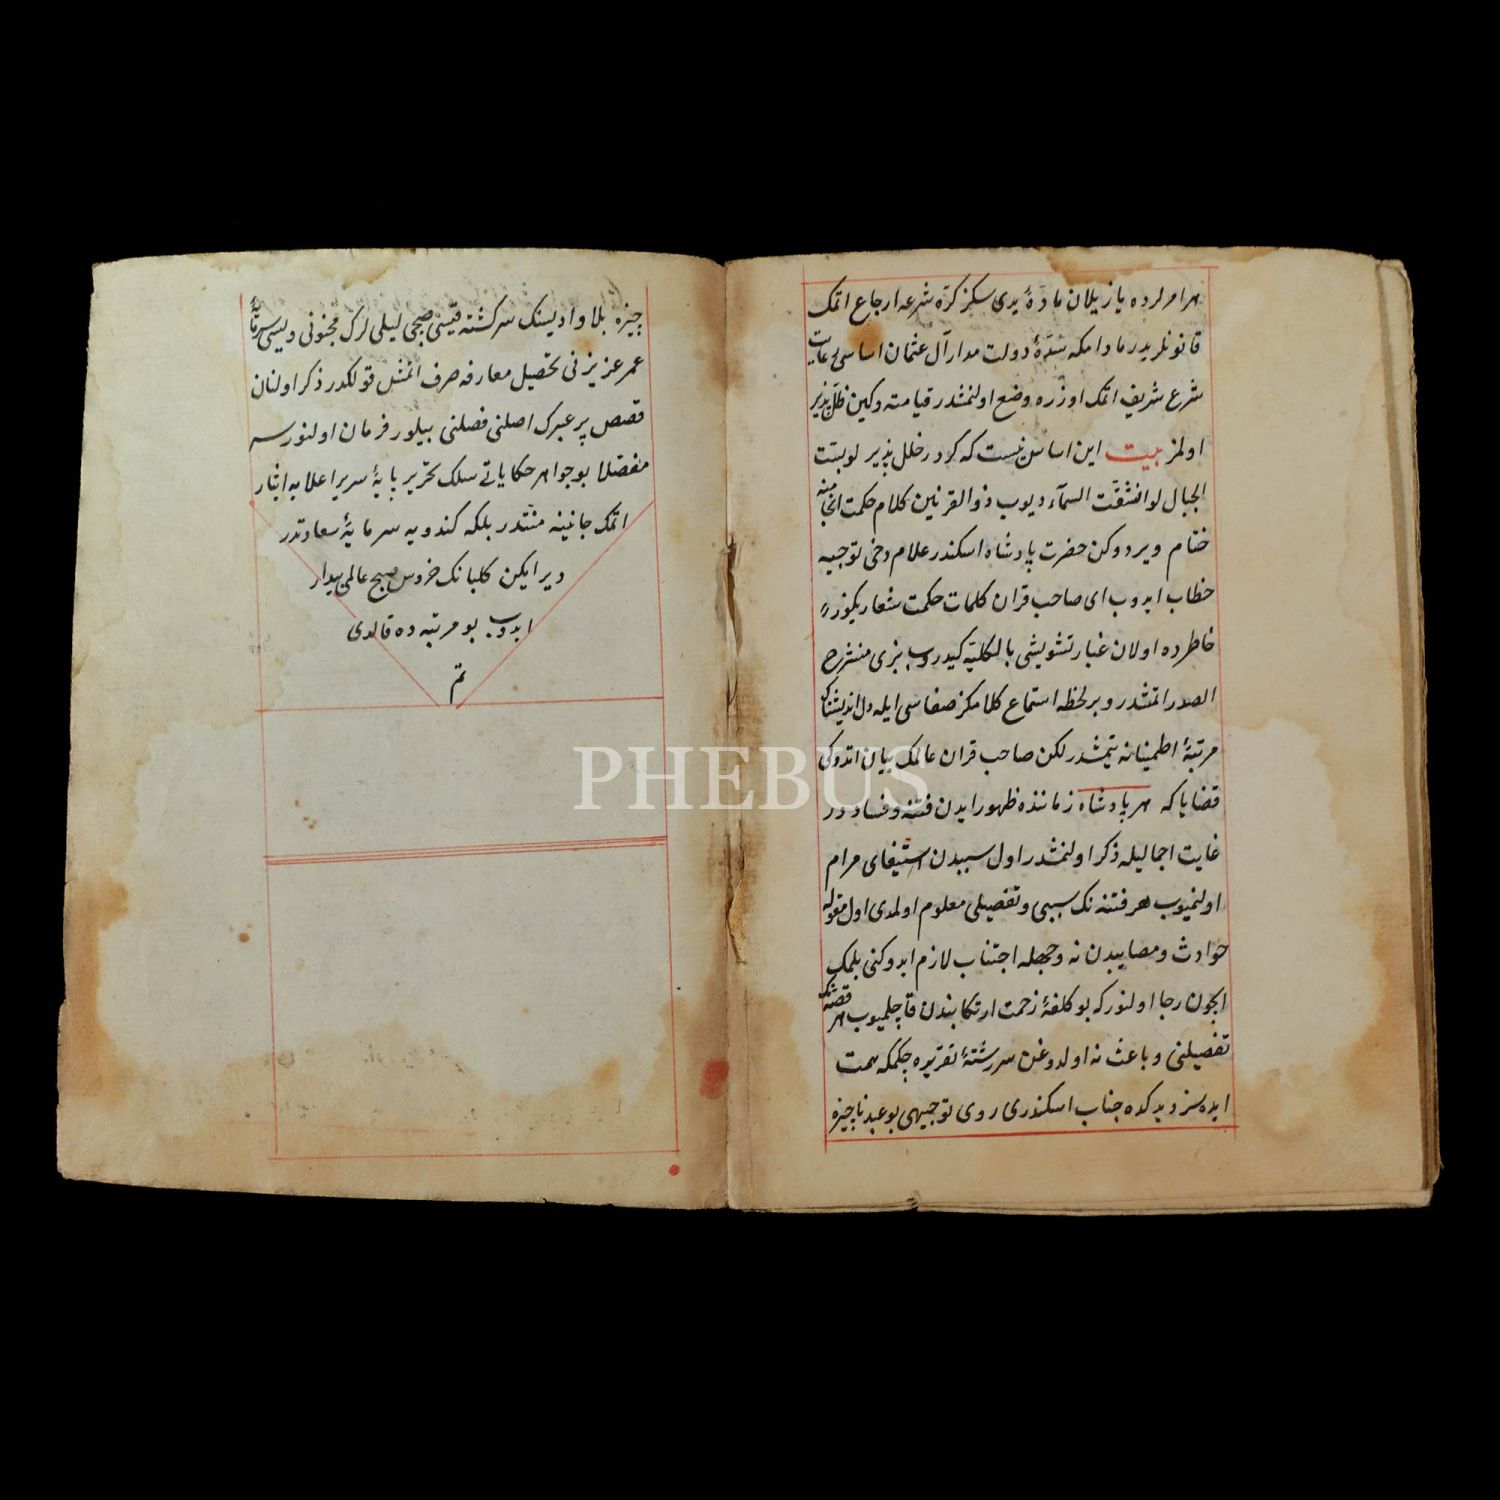 هر امرلرده یازیلان مادۀ یدی سکز کرّه شرعه ارجاع اتمک
قانونلریدر مادامکه سدّۀ دولت مدار آل عثمان اساسی رعایت
شرع شریف اتمک اوزره وضع اولنمشدر قیامته دکین خلل پذیر
اولمز بیت این اساس نیست که کردد خلل پذیر لو بست
الجبال لو انشقّت السمآء دیوب ذوالقرنین کلام حکمت انجامنه
ختام ویردوکن حضرت پادشاه اسکندر علام دخی توجیه
خطاب ایدوب ای صاحب قران کلمات حکمت شعاریکوز
خاطرده اولان غبار تشویشی بالکلیّه کیدروب بزی منشرح
الصدر اتمشدر و بر لحظه استماع کلامکز صفاسی ایله دل اندیشناک
مرتبۀ اطمینانه یتمشدر لکن صاحب قران عالمک بیان اتدوکی
قضایا که هر پادشاه زماننده ظهور ایدن فتنه و فساددر
غایت اجمالیله ذکر اولنمشدر اول سببدن استیفای مرام
اولنمیوب هر فتنه نک سببی و تفصیلی معلوم اولمدی اول مقوله
حوادث و مصایبدن نه وجهله اجتناب لازم ایدوکنی بلمک
ایچون رجا اولنور که بو کلفۀ زحمت ارتکابندن قاچلمیوب هر قصّه نک
تفصیلنی و باعث نه اولدوغن سررشتۀ تقریره چکمکه همت
ایده سز دیدکده جناب اسکندری روی توجیهی بو عبد ناچیزه
چیزه بلا وادیسنک سرکشته قیسی صبحی لیلی لرک مجنونی ویسی سرمایۀ
عمر عزیزنی تحصیل معارفه صرف اتمش قولکدر ذکر اولنان
قصص پر عبرک اصلنی فصلنی بیلور فرمان اولنورسه
مفصّلا بو جواهر حکایاتی سلک تحریر پایۀ سریر اعلایه ایثار
اتمک جانینه منّتدر بلکه کندویه سرمایۀ سعادتدر
دیر ایکن کلبانک خروس صبح عالمی بیدار
ایدوب بو مرتبه ده قالدی
تم
PHEBUS